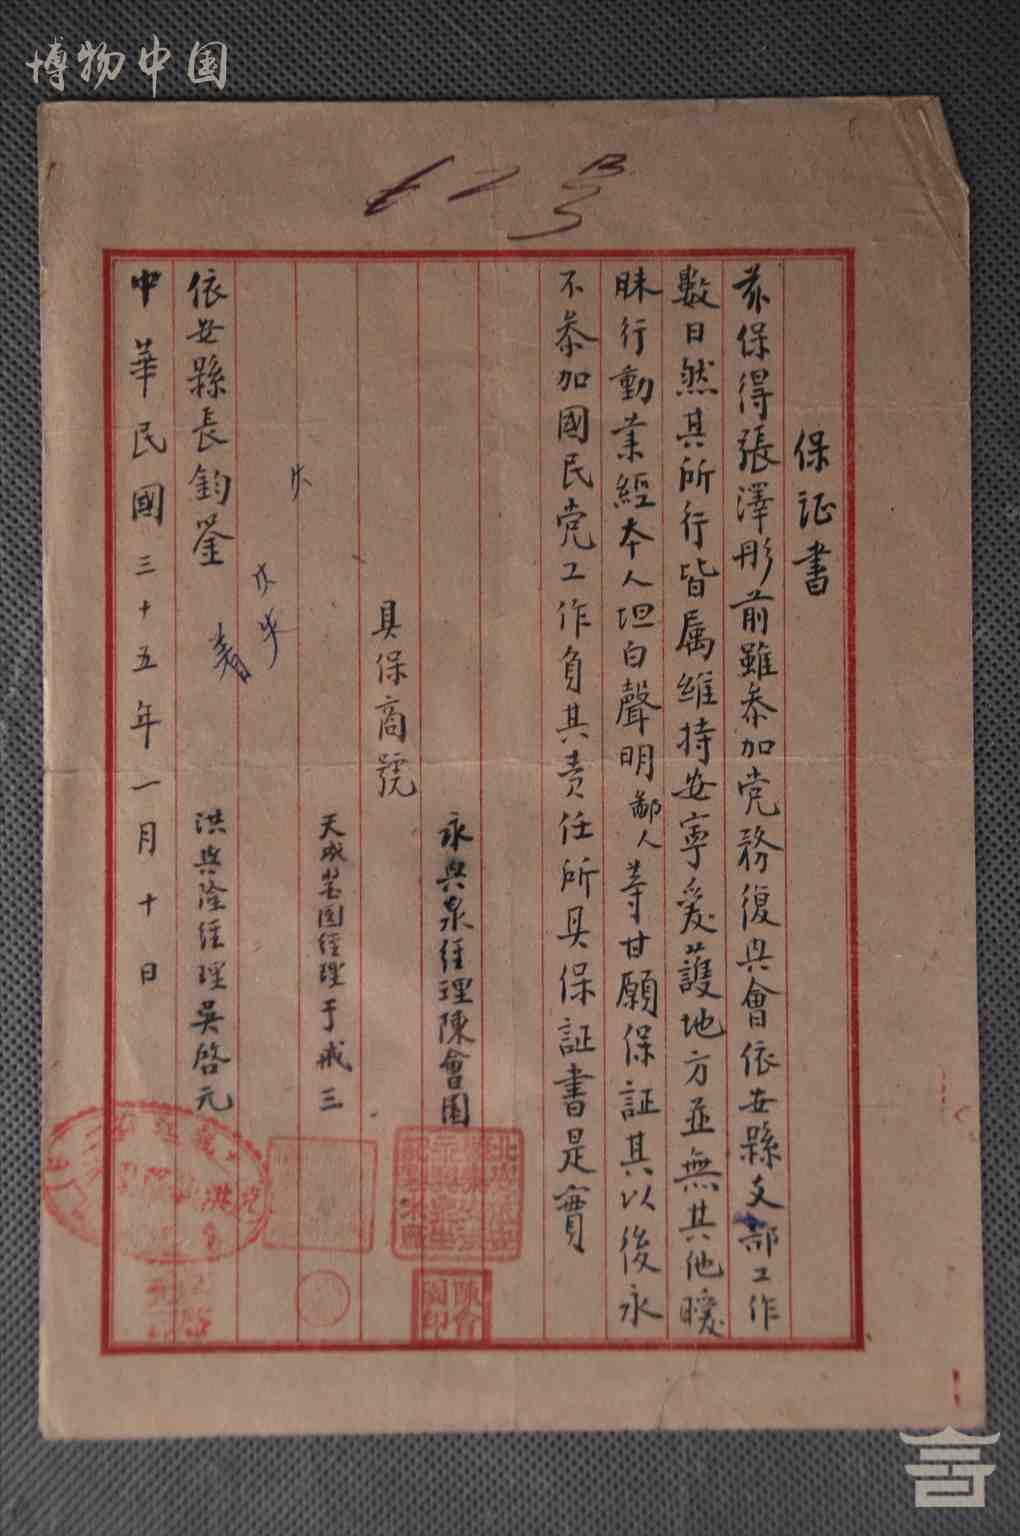 博物中国
保证書
茲保得張澤彤前雖参加党務復興會依安縣支部工作
数日然其所行皆属維持安寧爱護地方並無其他曖
昧行動業經本人坦白聲明鄙人等甘願保証其以後永
不参加國民党工作負其责任所具保証書是實
永興泉經理陳會閣
具保商號
天成 經理于戒三
洪興隆經理吳啓元
依安縣長鈞鉴
中華民國三十五年一月十日
陳會閣印